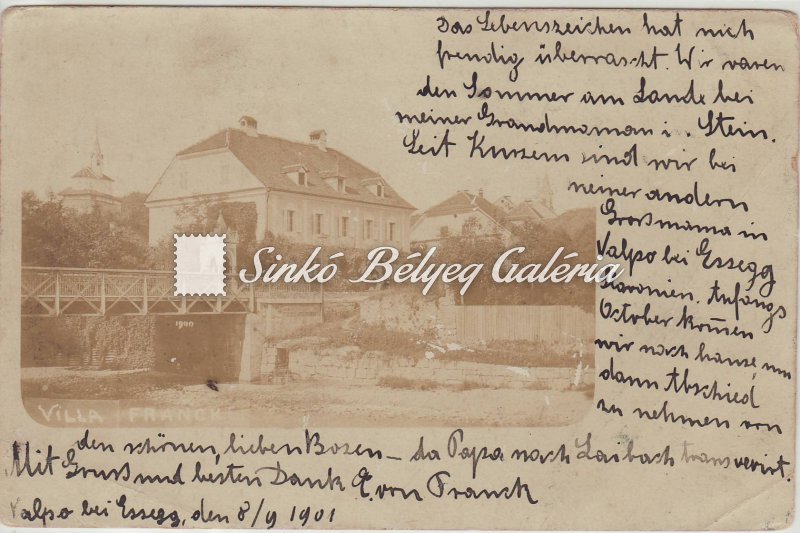 Das Lebenszeichen hat mich
freudig überrascht. Wir waren
den Sommer am Lande bei
meiner Grandmaman i. Stein.
Seit Kurzem sind wir bei
meiner andern
Großmama in
Valpo bei Essegg
Slavonien. Anfangs
October kom̄en
wir nach hause, um
dann Abschied
zu nehmen von
den schönen, lieben Bozen – da Papa nach Laibach transverirt.
Mit Gruß und besten Dank E. von Franck
Valpo bei Essegg, den 8/9 1901
Sinkó Bélyeg Galéria
1900
VILLA FRANCK